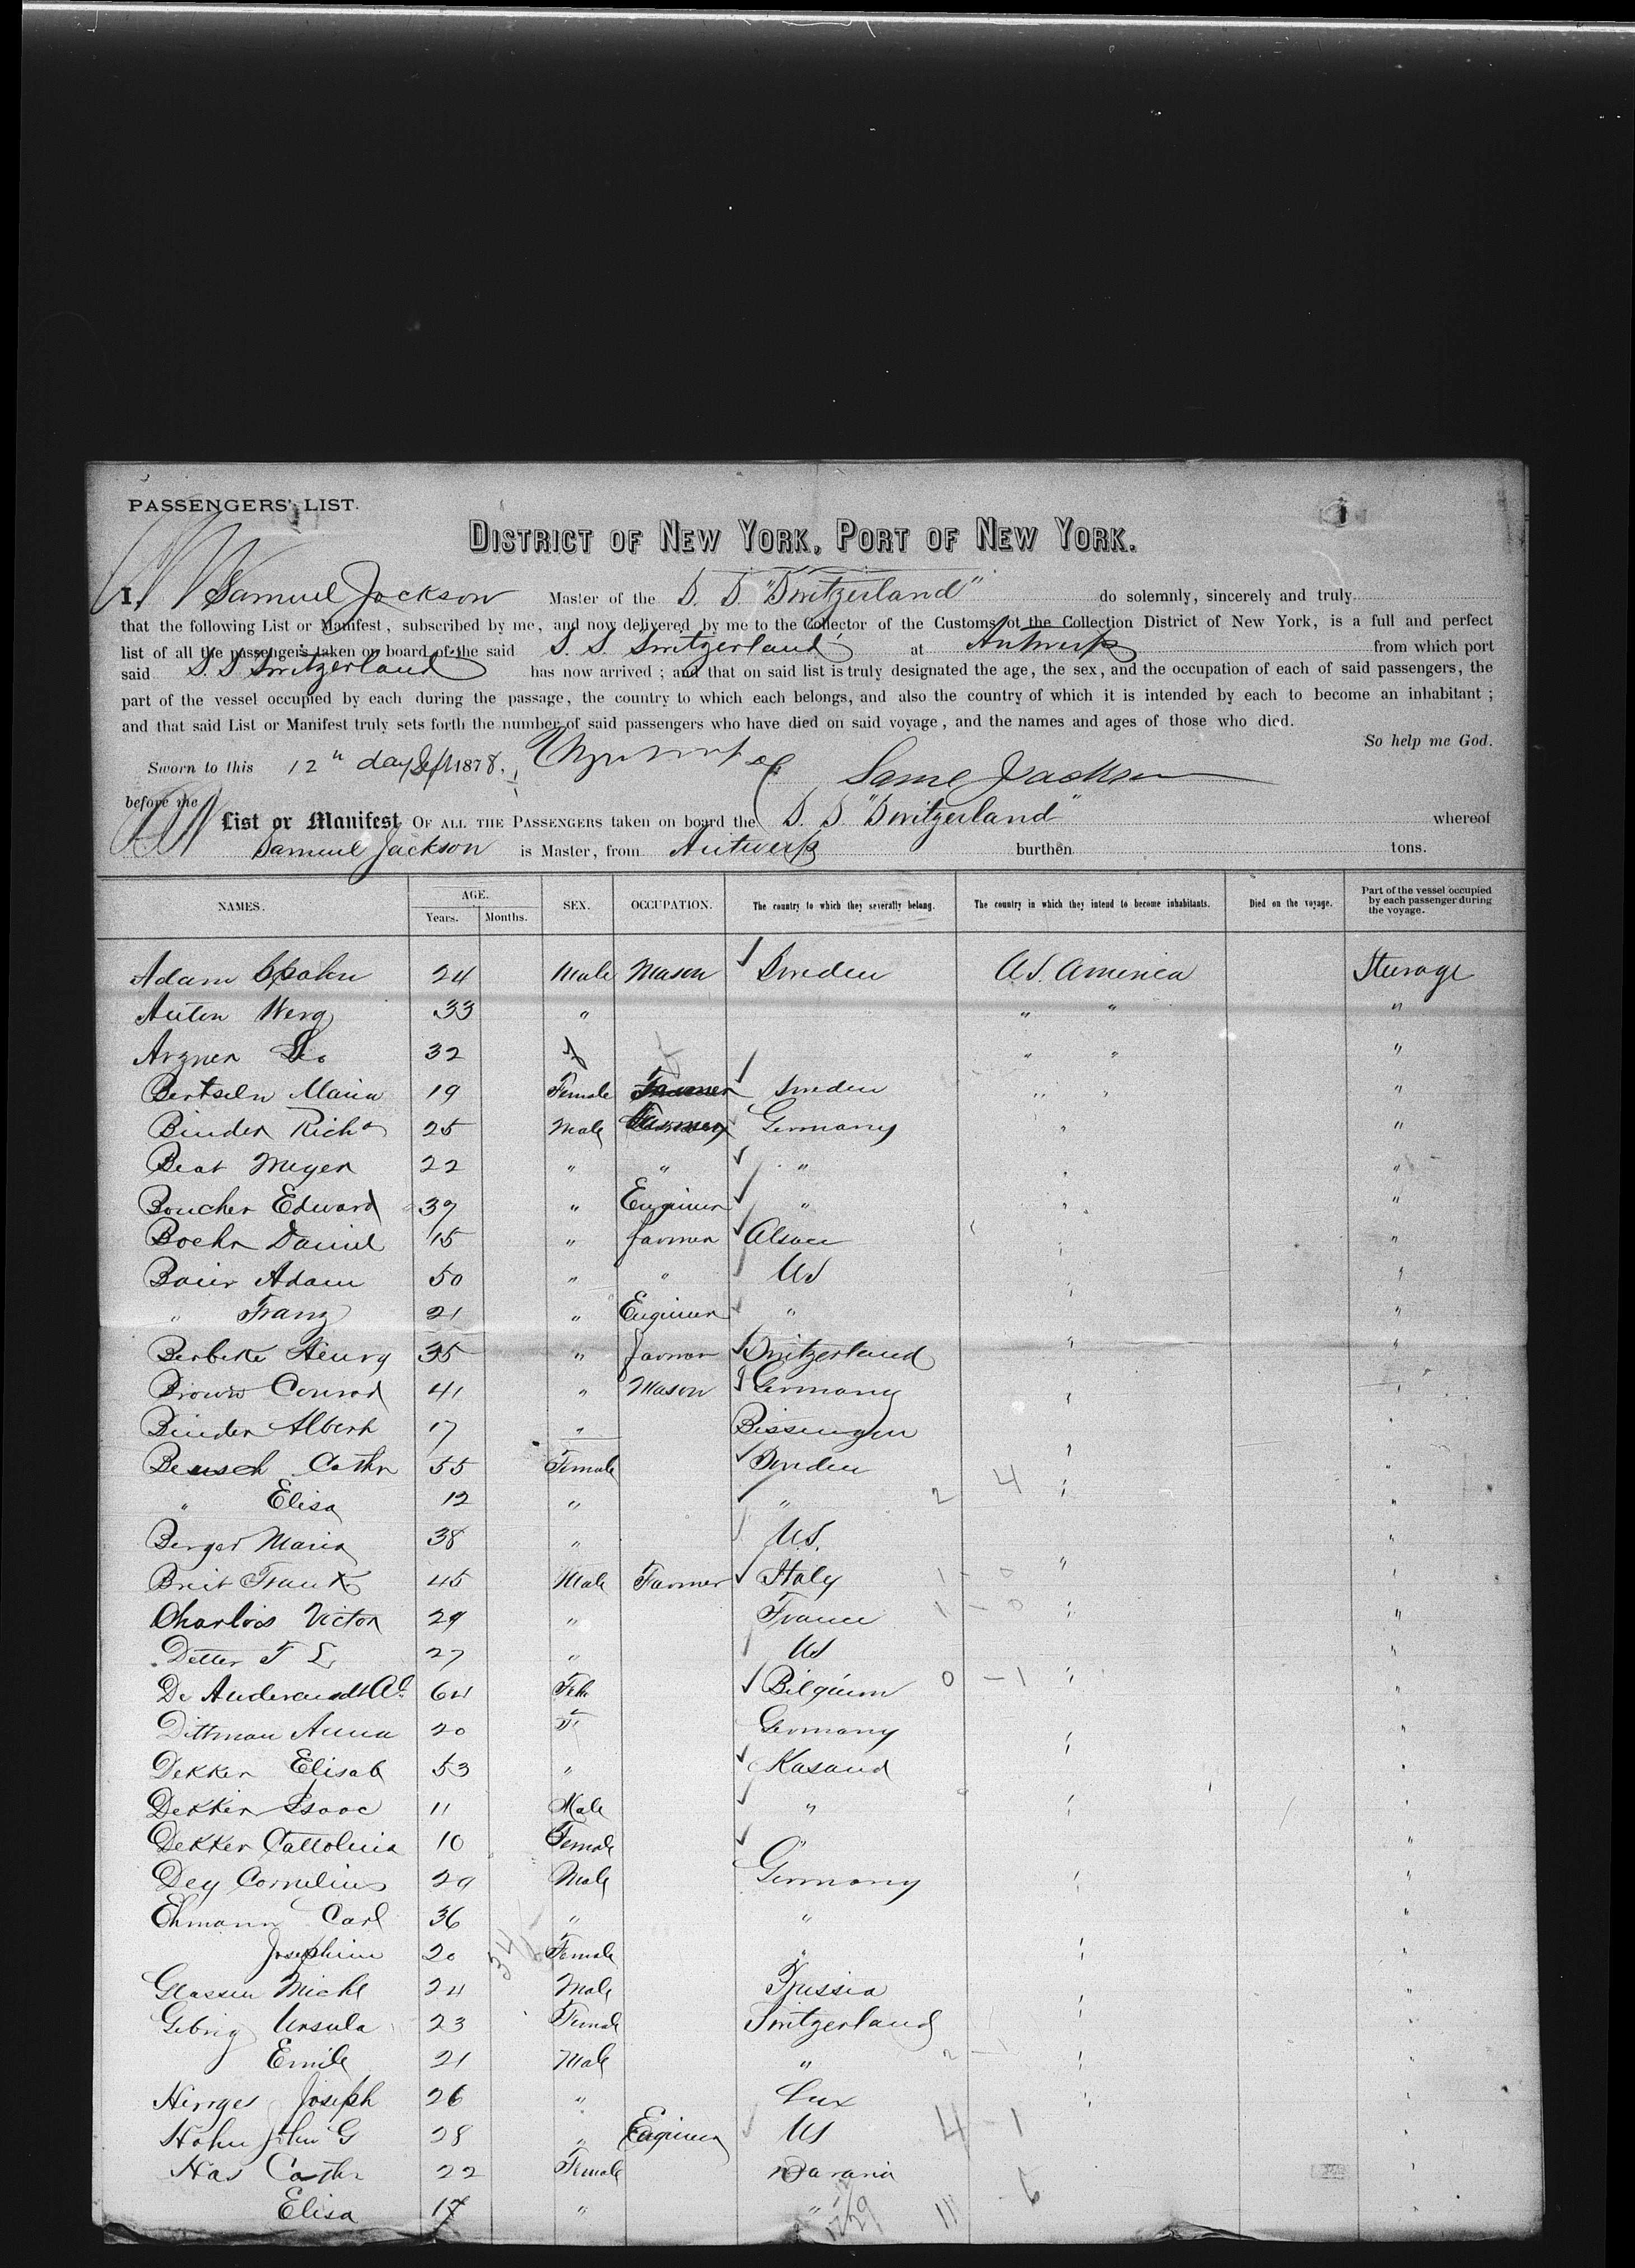 PASSENGERS' LIST.
DISTRICT OF NEW YORK, PORT OF NEW YORK.
I, Samuel Jackson Master of the S. S. "Switzerland" do solemnly, sincerely and truly
that the following List or Manifest, subscribed by me, and now delivered by me to the Collector of the Customs of the Collection District of New York, is a full and perfect
list of all the passengers taken on board of the said S. S. Switzerland at Antwerp from which port
said S. S Switzerland has now arrived; and that on said list is truly designated the age, the sex, and the occupation of each of said passengers, the
part of the vessel occupied by each during the passage, the country to which each belongs, and also the country of which it is intended by each to become an inhabitant;
and that said List or Manifest truly sets forth the number of said passengers who have died on said voyage, and the names and ages of those who died.
So help me God.
Sworn to this 12th day Sept 1878.
Saml Jackson
before me
List or Manifest OF ALL THE PASSENGERS taken on board the S. S. "Switzerland" whereof
Samuel Jackson is Master, from Antwerp burthen tons.
NAMES. AGE. Years. Months. SEX. OCCUPATION. The country to which they severally belong. The country in which they intend to become inhabitants. Died on the voyage. Part of the vessel occupied by each passenger during the voyage.
Adam Spahn 24 Male Mason Sweden U.S. America Steerage
Anton Werg 33 " " " "
Arzner 32 f " " "
Bertseln Maria 19 Female Sweden " " "
Binder Richd 25 Male Farmer Germany " "
Beat Meyer 22 " " " " "
Boucher Edward 39 " Engineer " " "
Boehr Daniel 15 " farmer Alsace " "
Baier Adam 50 " " US " "
" Franz 21 " Engineer " "
Berbeke Henry 35 " farmer Switzerland " "
Brown Conrad 41 " Mason Germany " "
Binder Albert 17 " Bissengen "
Beusch Cathr 55 Female Sweden " "
" Elisa 12 " " 2 4 " "
Berger Maria 38 " U.S. "
Breit Frank 45 Male Farmer Italy 1 - 0 " "
Charlois Victor 29 " France 1 - 0 " "
Detter F L 27 " US "
De 64 Fe Belgium 0 - 1 " "
Dittman Anna 20 F Germany " "
Dekker Elisab 53 " Kasand "
Dekker Isaac 11 Male " " "
Dekker Cattolina 10 Female " "
Dey Cornelius 29 Male Germany " "
Ehmann Carl 36 " " "
Josephine 20 Female " " "
Glassen Michl 24 Male Prussia " "
Gebrig Ursula 23 Female Switzerland " "
Emile 21 Male " 2 - 1 " "
Herges Joseph 26 " Lux " "
Hahn John G 28 " Engineer US 4 - 1 "
Has Cathr 22 Female Bavaria "
Elisa 17 " " 11 6 "
29